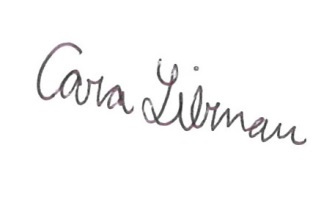 Cara Librnan